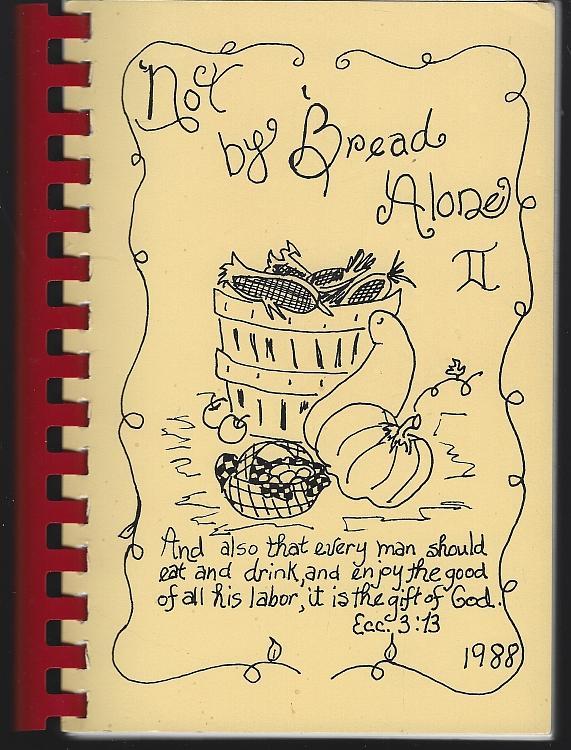 Not
by Bread
Alone
II
And also that every man should
eat and drink, and enjoy the good
of all his labor, it is the gift of God.
Ecc. 3:13
1988